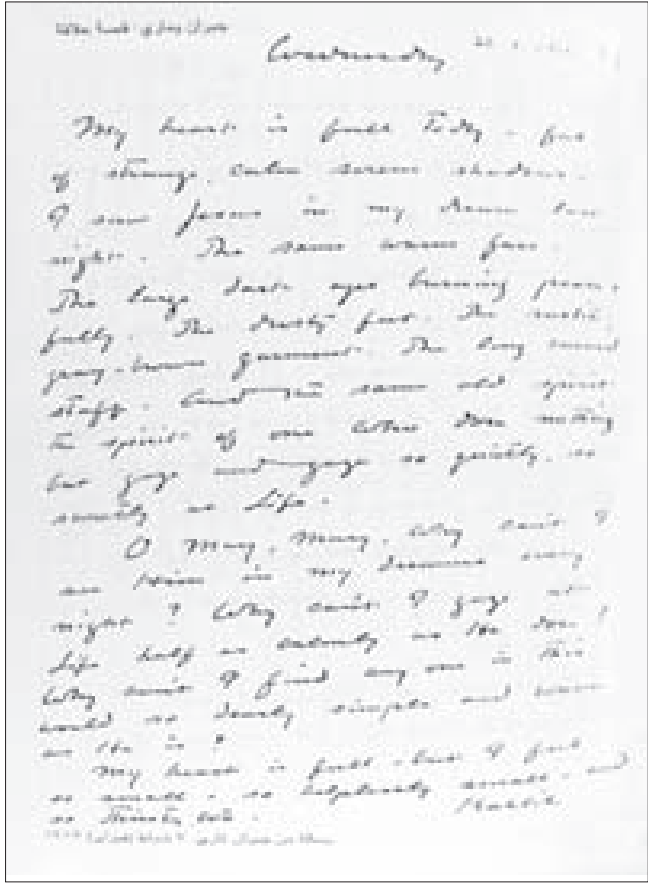 Wednesday
My heart is full today - full
of strange, calm serene shadows.
I saw Jesus in my dream last
night. The same warm face.
The large dark eyes burning peace-
fully. The dusty feet. The rustic,
gray-brown garment. The long
staff. And the same old spirit
the spirit of one who does nothing
but gaze and gaze so quietly, so
sweetly at Life.
O Mary, Mary, why can't I
see Him in my dreams every
night? Why can't I gaze at
Life half as calmly as He does?
Why can't I find any one in this
world so dearly simple and warm
as He is?
My heart is full - but I feel
so small - so helplessly small - and
so
Kahlil
رسالة من جبران